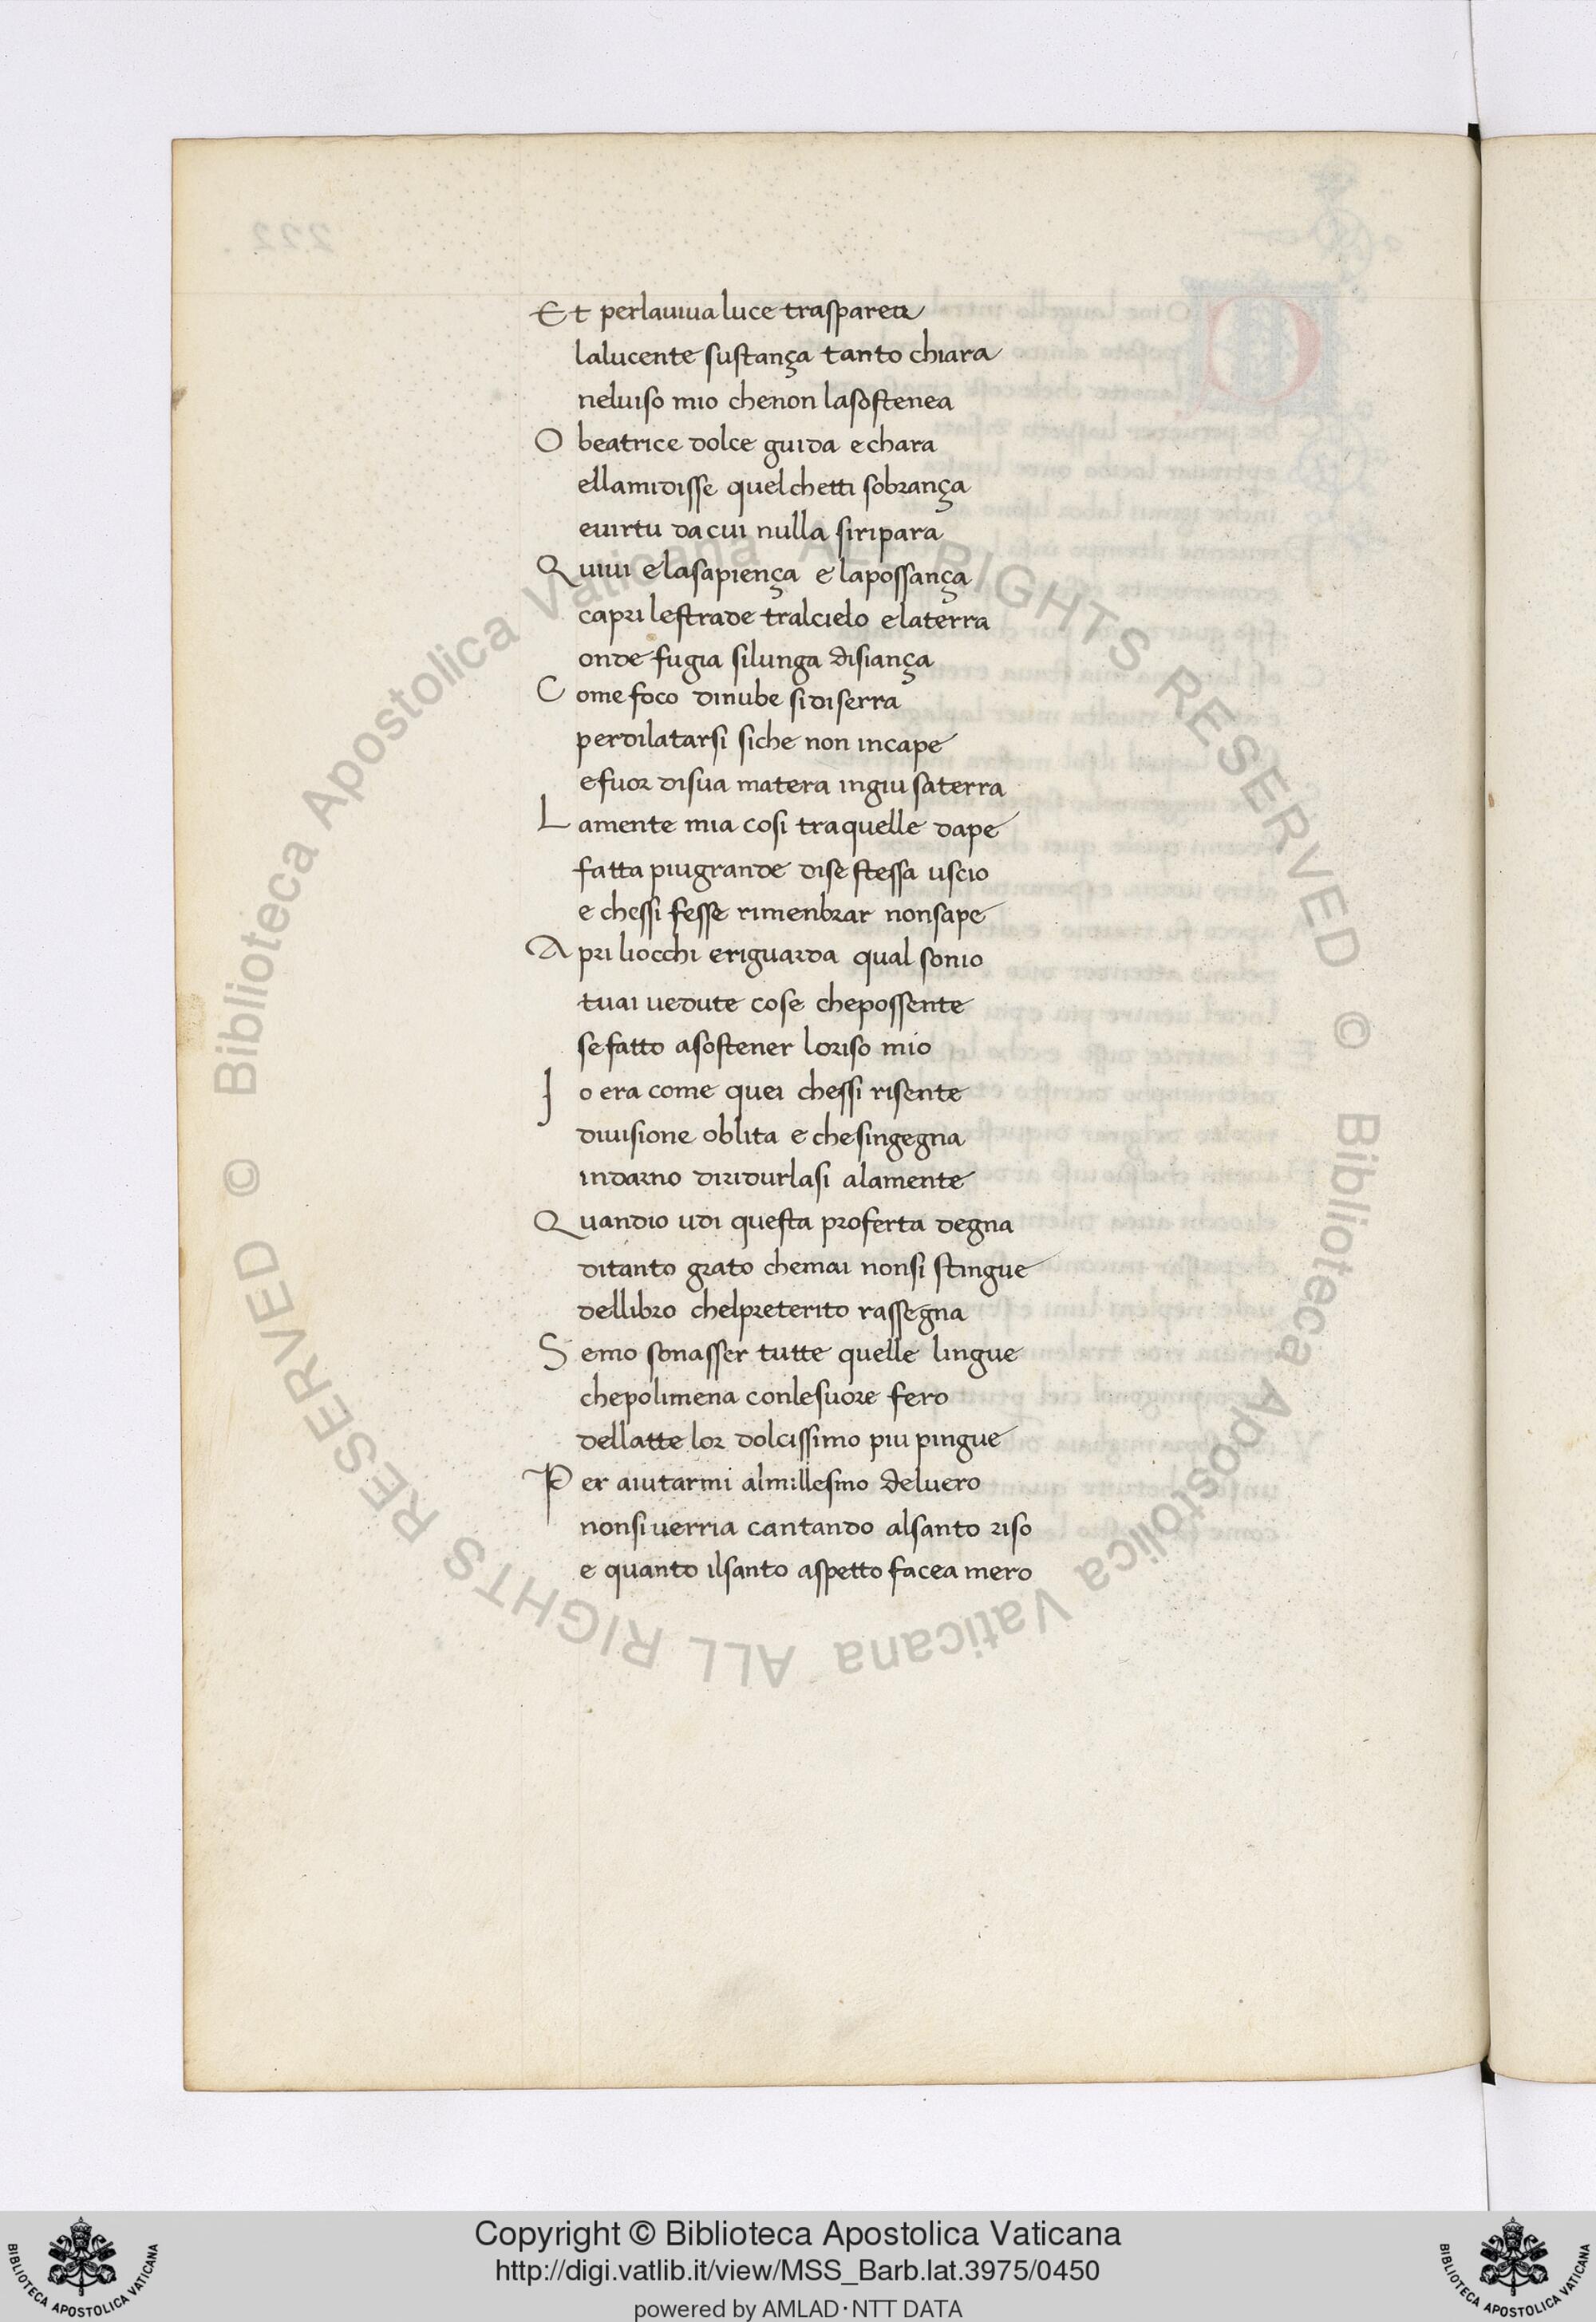 Et perlauiua luce trasparea
lalucente sustança tanto chiara
neluiso mio chenon lasostenea
O beatrice dolce guida echara
ellamidisse quelchetti sobrança
euirtu dacui nulla siripara
Quiui elasapiença e lapossança
capri lestrade tralcielo elaterra
onde fugia silunga disiança
Come foco dinube sidiserra
perdilatarsi siche non incape
efuor disua matera ingiu saterra
Lamente mia cosi traquelle dape
fatta piugrande dise stessa uscio
e chessi fesse rimenbrar nonsape
Apri liocchi eriguarda qual sonio
tuai uedute cose chepossente
sefatto asostener loriso mio
Io era come quei chessi risente
diuisione oblita e chesingegna
indarno diridurlasi alamente
Quandio udi questa proferta degna
ditanto grato chemai nonsi stingue
dellibro chelpreterito rassegna
Semo sonasser tutte quelle lingue
chepolimena conlesuore fero
dellatte lor dolcissimo piu pingue
Per aiutarmi almillesmo deluero
nonsiuerria cantando alsanto riso
e quanto ilsanto aspetto facea mero
222
© Biblioteca Apostolica Vaticana ALL RIGHTS RESERVED
© Biblioteca Apostolica Vaticana ALL RIGHTS RESERVED
Copyright © Biblioteca Apostolica Vaticana
http://digi.vatlib.it/view/MSS_Barb.lat.3975/0450
powered by AMLAD·NTT DATA
BIBLIOTECA APOSTOLICA VATICANA
BIBLIOTECA APOSTOLICA VATICANA